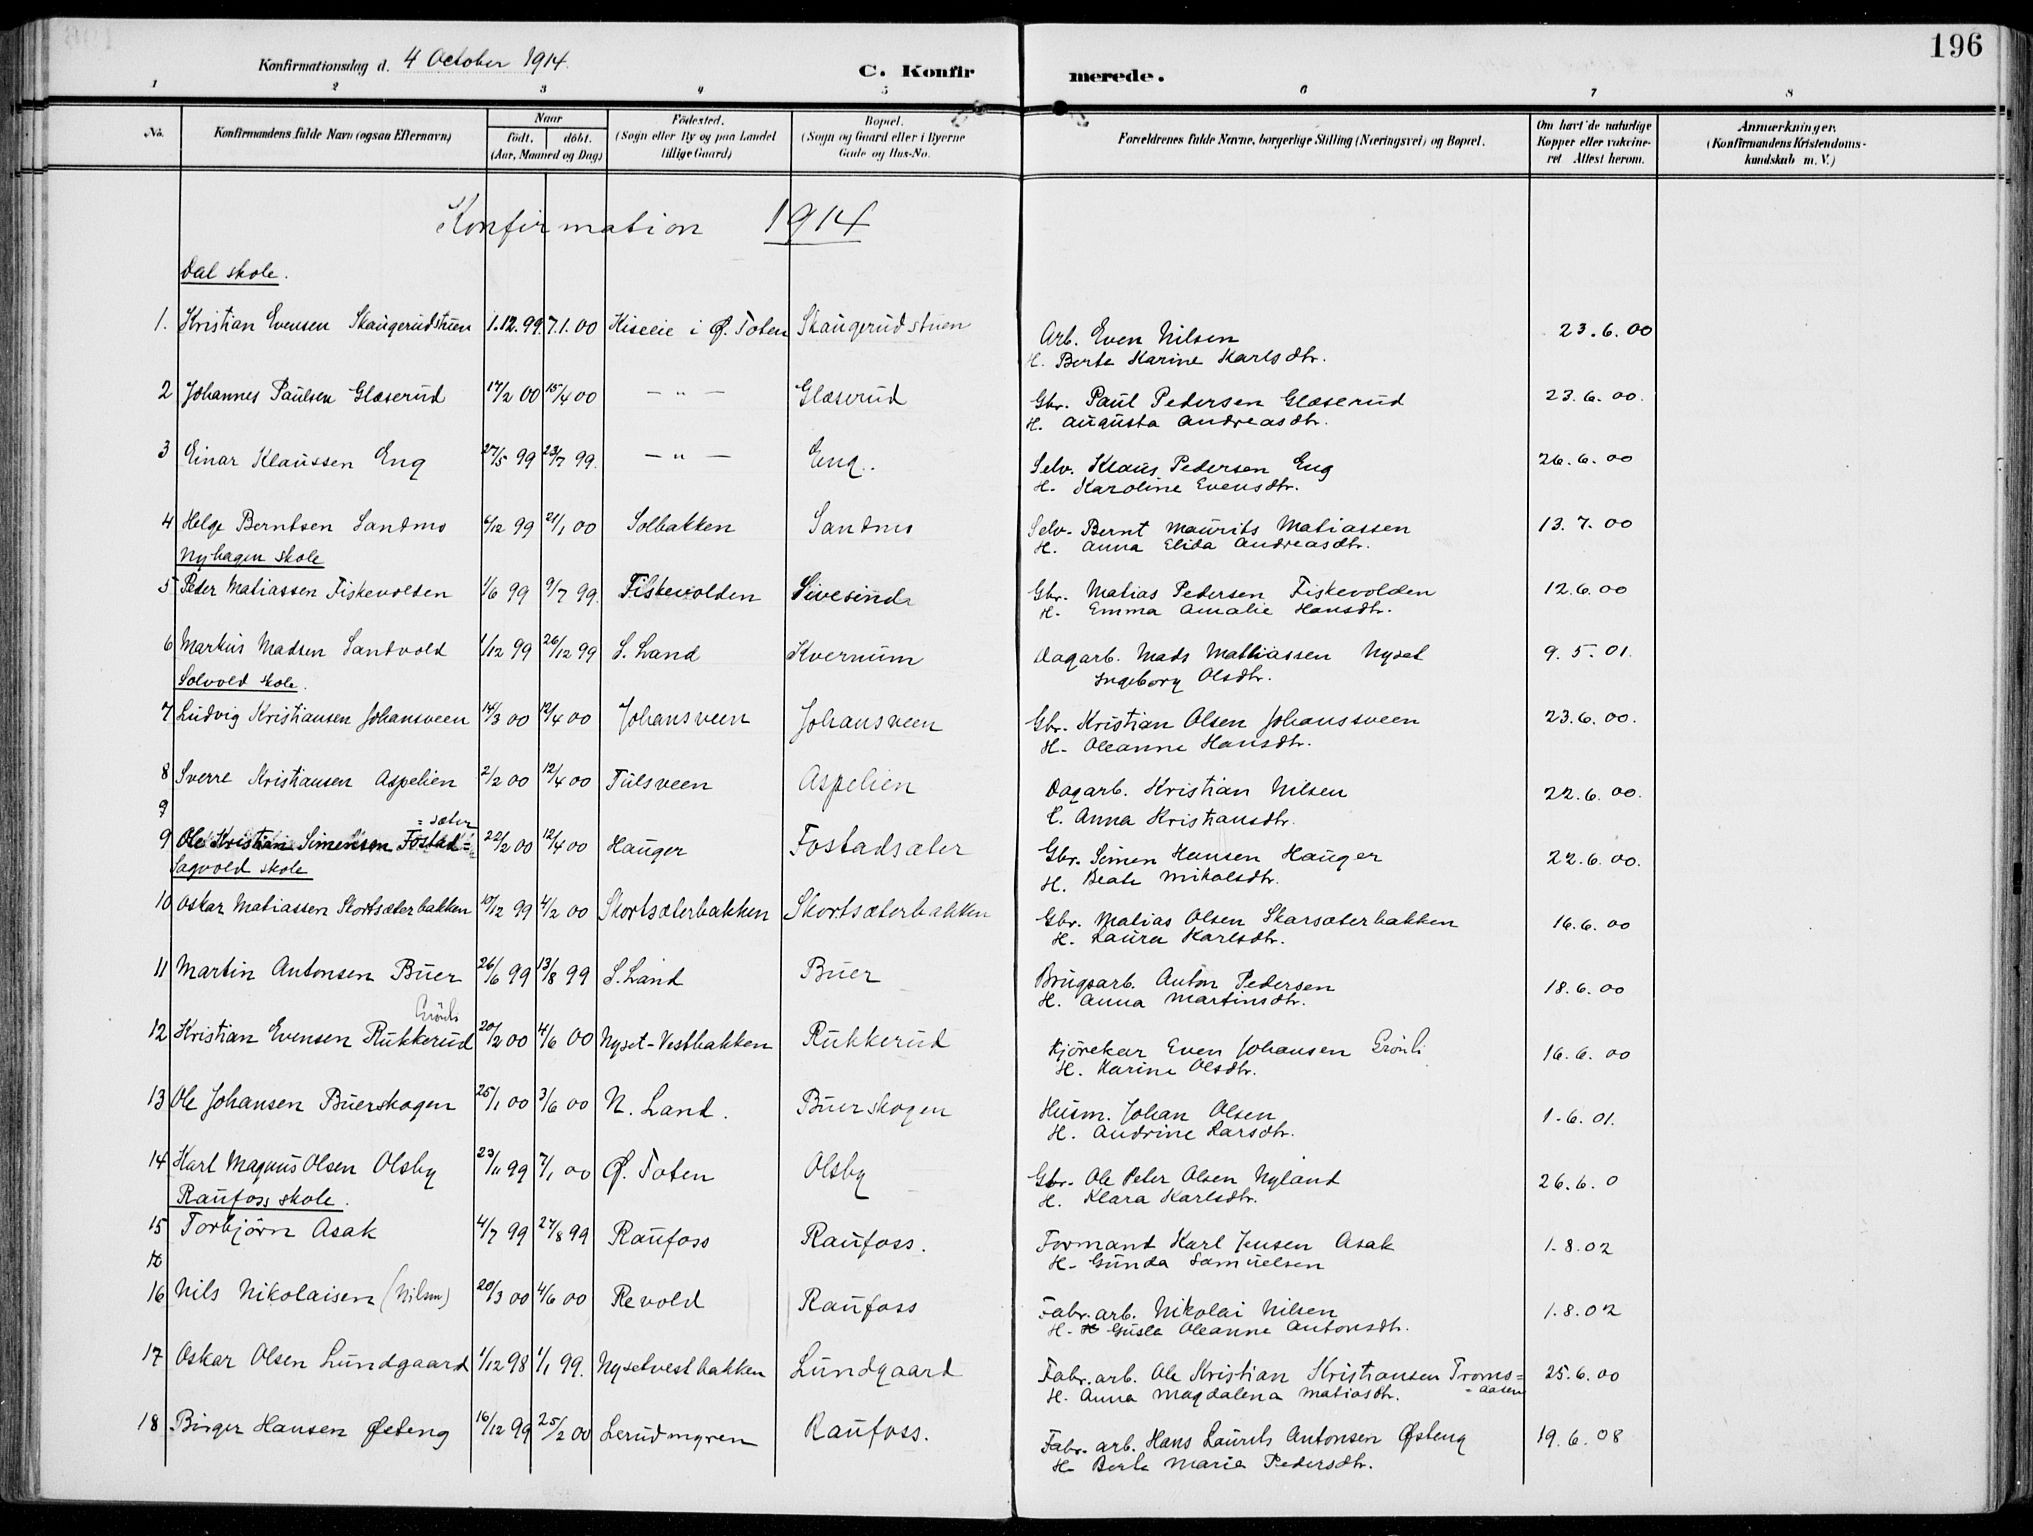 196
Konfirmationsdag d. 4 October 1914.
C. Konfirmerede.
1 2 3 4 5 6 7 8
No.
Konfirmandens fulde Navn (ogsaa Efternavn)
Naar
födt. döbt.
(Aar, Maaned og Dag)
Födested.
(Sogn eller By og paa Landet
tillige Gaard)
Bopæl.
(Sogn og Gaard eller i Byerne
Gade og Hus-No.
Forældrenes fulde Navne, borgerlige Stilling (Næringsvei) og Bopæl.
Om havt de naturlige
Kopper eller vakcine-
ret. Attest herom.
Anmærkninger.
(Konfirmandens Kristendoms-
kundskab m. V.)
Konfirmation 1914
Dal skole.
1. Kristian Evensen Skaugerudstuen 1.12.99. 7.1.00 Kiseeie i Ø. Toten Skaugerudstuen Arb. Even Nilsen 23.6.00
H. Berte Karine Karlsdtr.
2 Johannes Paulsen Glæserud 17/2 00 15/4 00 — " — Glæserud Gbr. Paul Pedersen Glæserud 23.6.00.
H. Augusta Andreasdtr.
3 Einar Klaussen Eng 27/5 99 23/7 99. — " — Eng.. Selv. Klaus Pedersen Eng 26.6.00
H. Karoline Evensdtr.
4 Helge Berntsen Sandmo 6/12 99 21/1 00 Solbakken Sandmo Selv. Bernt Maurits Matiassen 13.7.00
H. Anna Elida Andreasdtr.
Nyhagen skole
5 Peder Matiassen Fiskevolden 1/6 99 9/7 99. Fiskevolden Sivesinda Gbr. Matias Pedersen Fiskevolden 12.6.00
H. Emma Amalie Hansdtr.
6 Markus Madsen Sandvold 1/12 99 26/12 99 S. Land Kvernum Dagarb. Mads Mathiassen Nyset 9.5.01.
Ingeborg Olsdtr.
Solvold skole.
7 Ludvig Kristiansen Johansveen 14/3 00 12/4 00 Johansveen Johansveen Gbr. Kristian Olsen Johanssveen 23.6.00.
H. Oleanne Hansdtr.
8 Sverre Kristiansen Aspelien 2/2 00 12/4 00 Tulsveen Aspelien Dagarb. Kristian Nilsen 22.6.00.
H. Anna Kristiansdtr.
9
= sæter
9 Ole Kristian Simensen Fostad= 22/2 00 12/4 00 Hauger Fostadsæter Gbr. Simen Hansen Hauger 22.6.00.
H. Beate Mikolsdtr.
Sagvold skole
10 Oskar Matiassen Skortsæterbakken 10/12 99 4/2 00 Skortsæterbakken Skortsæterbakken Gbr. Matias Olsen Skarsæterbakken 16.6.00
H. Laura Karlsdtr.
11 Martin Antonsen Buer 26/6 99 13/8 99 S. Land Buer Brugsarb. Anton Pedersen 18.6.00
H. Anna Martinsdtr.
Grönli
12 Kristian Evensen Rukkerud 20/2 00 4/6 00 Nyset-Vestbakken Rukkerud Kjörekar Even Johansen Grönli 16.6.00
H. Karine Olsdtr.
13 Ole Johansen Buerskogen 25/1 00 3/6 00 N. Land. Buerskogen Husm. Johan Olsen 1.6.01.
H. Andrine Larsdtr.
14 Karl Magnus Olsen Olsby 23/11 99 7/1 00 Ø. Toten Olsby Gbr. Ole Peter Olsen Nyland 26.6.0
H. Klara Karlsdtr.
Raufoss skole.
15 Torbjörn Asak 4/7 99 27/8 99 Raufoss Raufoss. Formand Karl Jensen Asak 1.8.02
H. Gunda Samuelsen
16 Nils Nikolaisen (Nilsen) 20/3 00 4/6 00 Revold Raufoss Fabr. arb. Nikolai Nilsen 1.8.02
H. Gusta Oleanne Antonsdtr.
17 Oskar Olsen Lundgaard 1/12 98 1/1 99. Nysetvestbakken Lundgaard Fabr. arb. Ole Kristian Kristiansen Troms= 25.6.00
=aasen
H. Anna Magdalena Matiasdtr.
18 Birger Hansen Østeng 16/12 99 25/2 00 Lerudmyren Raufoss. Fabr. arb. Hans Laurits Antonsen Østeng 19.6.08
H. Berte Marie Pedersdtr.